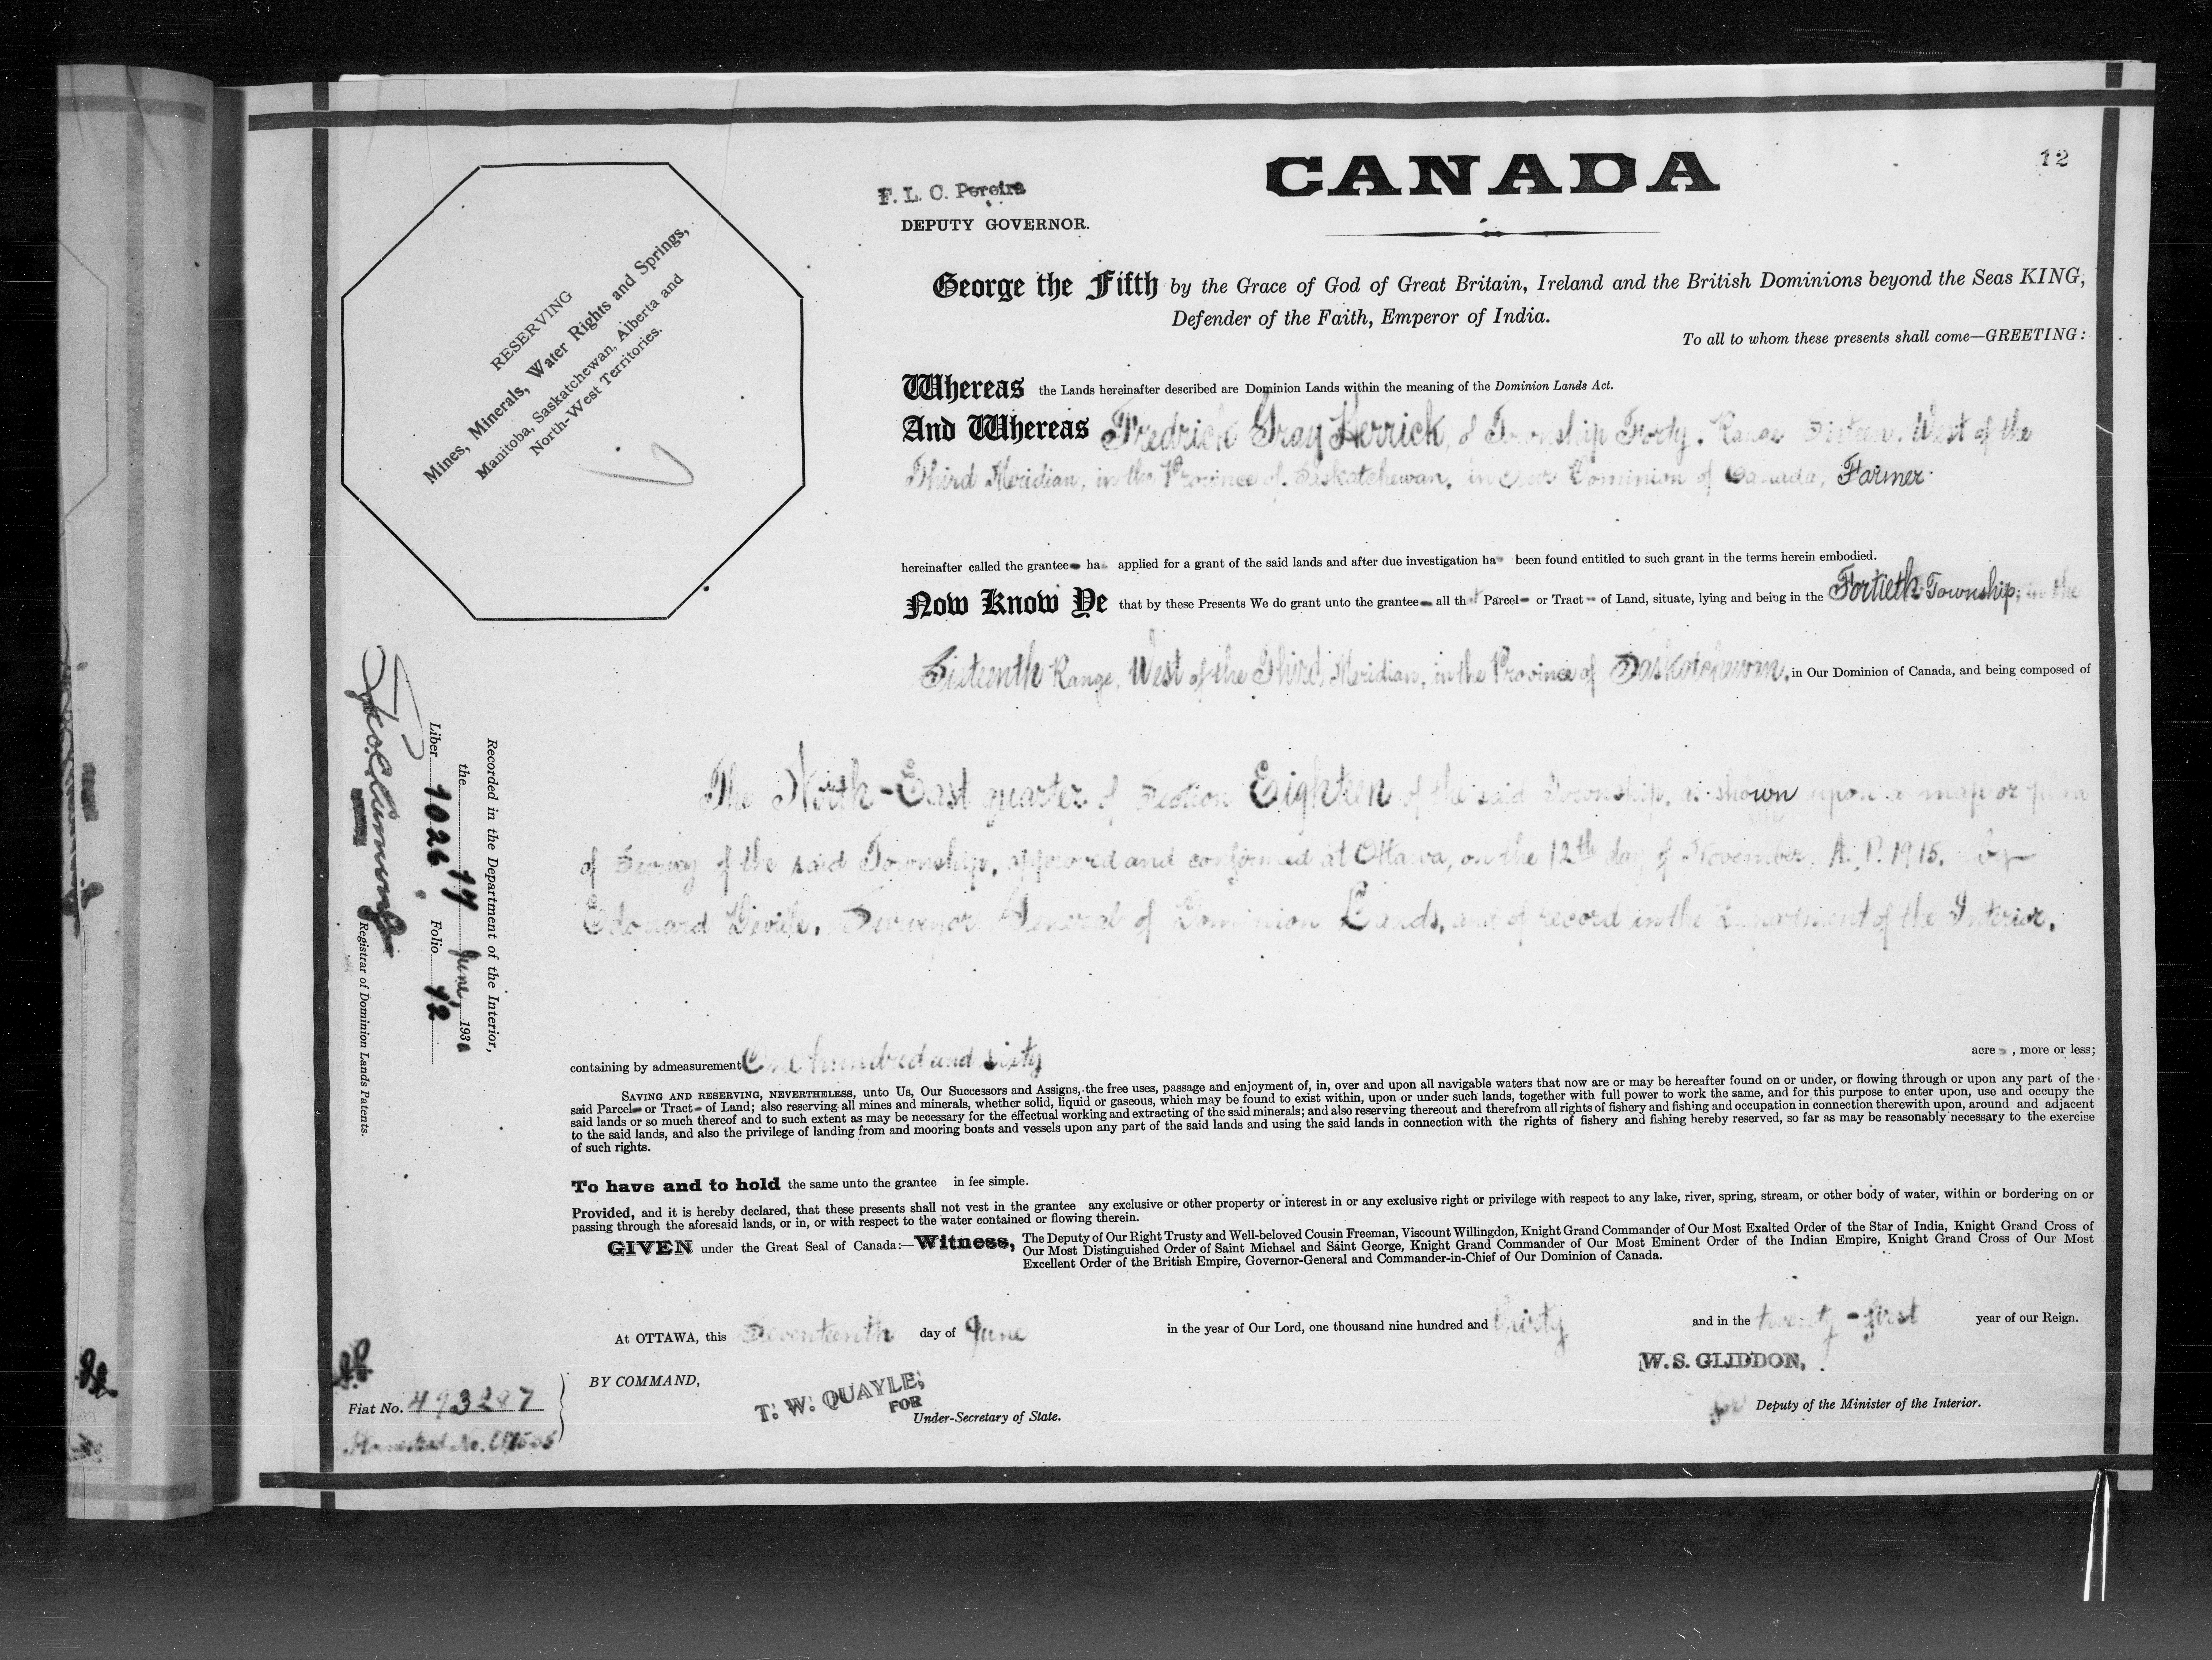 12
CANADA
F. L. C. Pereira
DEPUTY GOVERNOR.
RESERVING
Mines, Minerals, Water Rights and Springs,
Manitoba, Saskatchewan, Alberta and
North-West Territories.
George the Fifth by the Grace of God of Great Britain, Ireland and the British Dominions beyond the Seas KING,
Defender of the Faith, Emperor of India.
To all to whom these presents shall come—GREETING:
Whereas the Lands hereinafter described are Dominion Lands within the meaning of the Dominion Lands Act.
And Whereas Fredrick Gray Herrick, of Township Forty, Range Sixteen, West of the
Third Meridian, in the Province of Saskatchewan, in Our Dominion of Canada, Farmer
hereinafter called the grantee ha applied for a grant of the said lands and after due investigation ha been found entitled to such grant in the terms herein embodied.
Now Know Ye that by these Presents We do grant unto the grantee all that Parcel or Tract of Land, situate, lying and being in the Fortieth Township, in the
Sixteenth Range, West of the Third Meridian, in the Province of Saskatchewan, in Our Dominion of Canada, and being composed of
The North-East quarter of Section Eighteen of the said Township, as shown upon a map or plan
of Survey of the said Township, approved and confirmed at Ottawa, on the 12th day of November, A.D. 1915, by
Edouard Deville, Surveyor General of Dominion Lands, and of record in the Department of the Interior.
containing by admeasurement One hundred and sixty acres, more or less;
SAVING AND RESERVING, NEVERTHELESS, unto Us, Our Successors and Assigns, the free uses, passage and enjoyment of, in, over and upon all navigable waters that now are or may be hereafter found on or under, or flowing through or upon any part of the
said Parcel or Tract of Land; also reserving all mines and minerals, whether solid, liquid or gaseous, which may be found to exist within, upon or under such lands, together with full power to work the same, and for this purpose to enter upon, use and occupy the
said lands or so much thereof and to such extent as may be necessary for the effectual working and extracting of the said minerals; and also reserving thereout and therefrom all rights of fishery and fishing and occupation in connection therewith upon, around and adjacent
to the said lands, and also the privilege of landing from and mooring boats and vessels upon any part of the said lands and using the said lands in connection with the rights of fishery and fishing hereby reserved, so far as may be reasonably necessary to the exercise
of such rights.
To have and to hold the same unto the grantee in fee simple.
Provided, and it is hereby declared, that these presents shall not vest in the grantee any exclusive or other property or interest in or any exclusive right or privilege with respect to any lake, river, spring, stream, or other body of water, within or bordering on or
passing through the aforesaid lands, or in, or with respect to the water contained or flowing therein.
GIVEN under the Great Seal of Canada:—Witness, The Deputy of Our Right Trusty and Well-beloved Cousin Freeman, Viscount Willingdon, Knight Grand Commander of Our Most Exalted Order of the Star of India, Knight Grand Cross of
Our Most Distinguished Order of Saint Michael and Saint George, Knight Grand Commander of Our Most Eminent Order of the Indian Empire, Knight Grand Cross of Our Most
Excellent Order of the British Empire, Governor-General and Commander-in-Chief of Our Dominion of Canada.
At OTTAWA, this Seventeenth day of June in the year of Our Lord, one thousand nine hundred and thirty and in the twenty-first year of our Reign.
BY COMMAND,
T. W. QUAYLE,
FOR
Under-Secretary of State.
W. S. GLIDDON,
for Deputy of the Minister of the Interior.
Fiat No. 493287
Homestead No.
Recorded in the Department of the Interior,
the 17 June, 1930
Liber 1026 Folio 12
Registrar of Dominion Lands Patents.